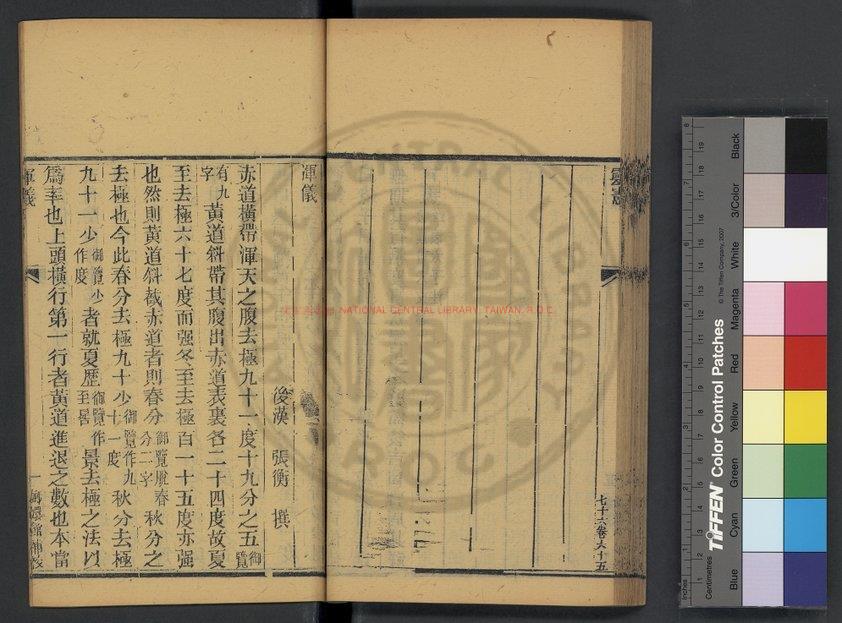 七十六卷六十五
渾儀
後漢　張衡　撰
赤道橫帶渾天之腹去極九十一度十九分之五御覽
有九字黃道斜帶其腹出赤道表裏各二十四度故夏
至去極六十七度而强冬至去極百一十五度亦强
也然則黃道斜截赤道者則春分御覽脫春分二字秋分之
去極也今此春分去極九十少御覽作九十一度秋分去極
九十一少御覽少作度者就夏歷御覽作至晷景去極之法以
爲率也上頭橫行第一行者黃道進退之數也本當
渾儀
NATIONAL CENTRAL LIBRARY, TAIWAN, R.O.C.
TIFFEN Color Control Patches
© The Tiffen Company, 2007
Inches
Centimetres
Blue
Cyan
Green
Yellow
Red
Magenta
White
3/Color
Black